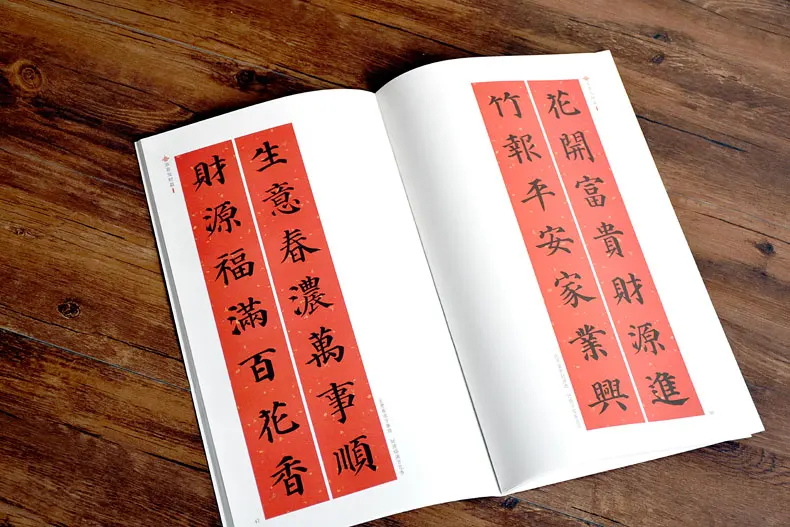 花開富貴財源進
竹報平安家業興
生意春濃萬事順
財源福滿百花香